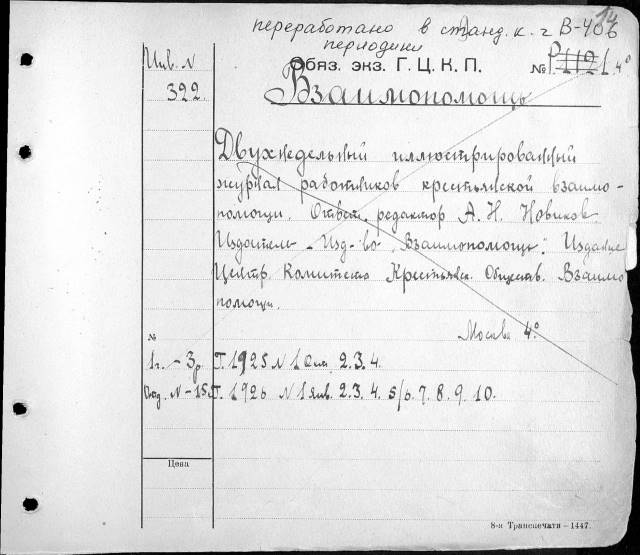 14
переработано в станд. к. г В-406
периодики
Инв. N
Обяз. экз. Г. Ц. К. П. №
322
Взаимопомощь
Двухнедельный иллюстрированный
журнал работников крестьянской взаимо-
помощи. Ответ. редактор А. Н. Новиков
Издатель - Изд-во „Взаимопомощь". Издание
Центр. Комитета Крестьянск. Обществ. Взаимо
помощи.
Москва 4°
№
1г. - 3р Г. 1925 N 1 2. 3. 4.
N - 15к Г. 1926 N 1 янв. 2. 3. 4. 5/6. 7. 8. 9. 10.
Цена
8-я Транспечати — 1447.